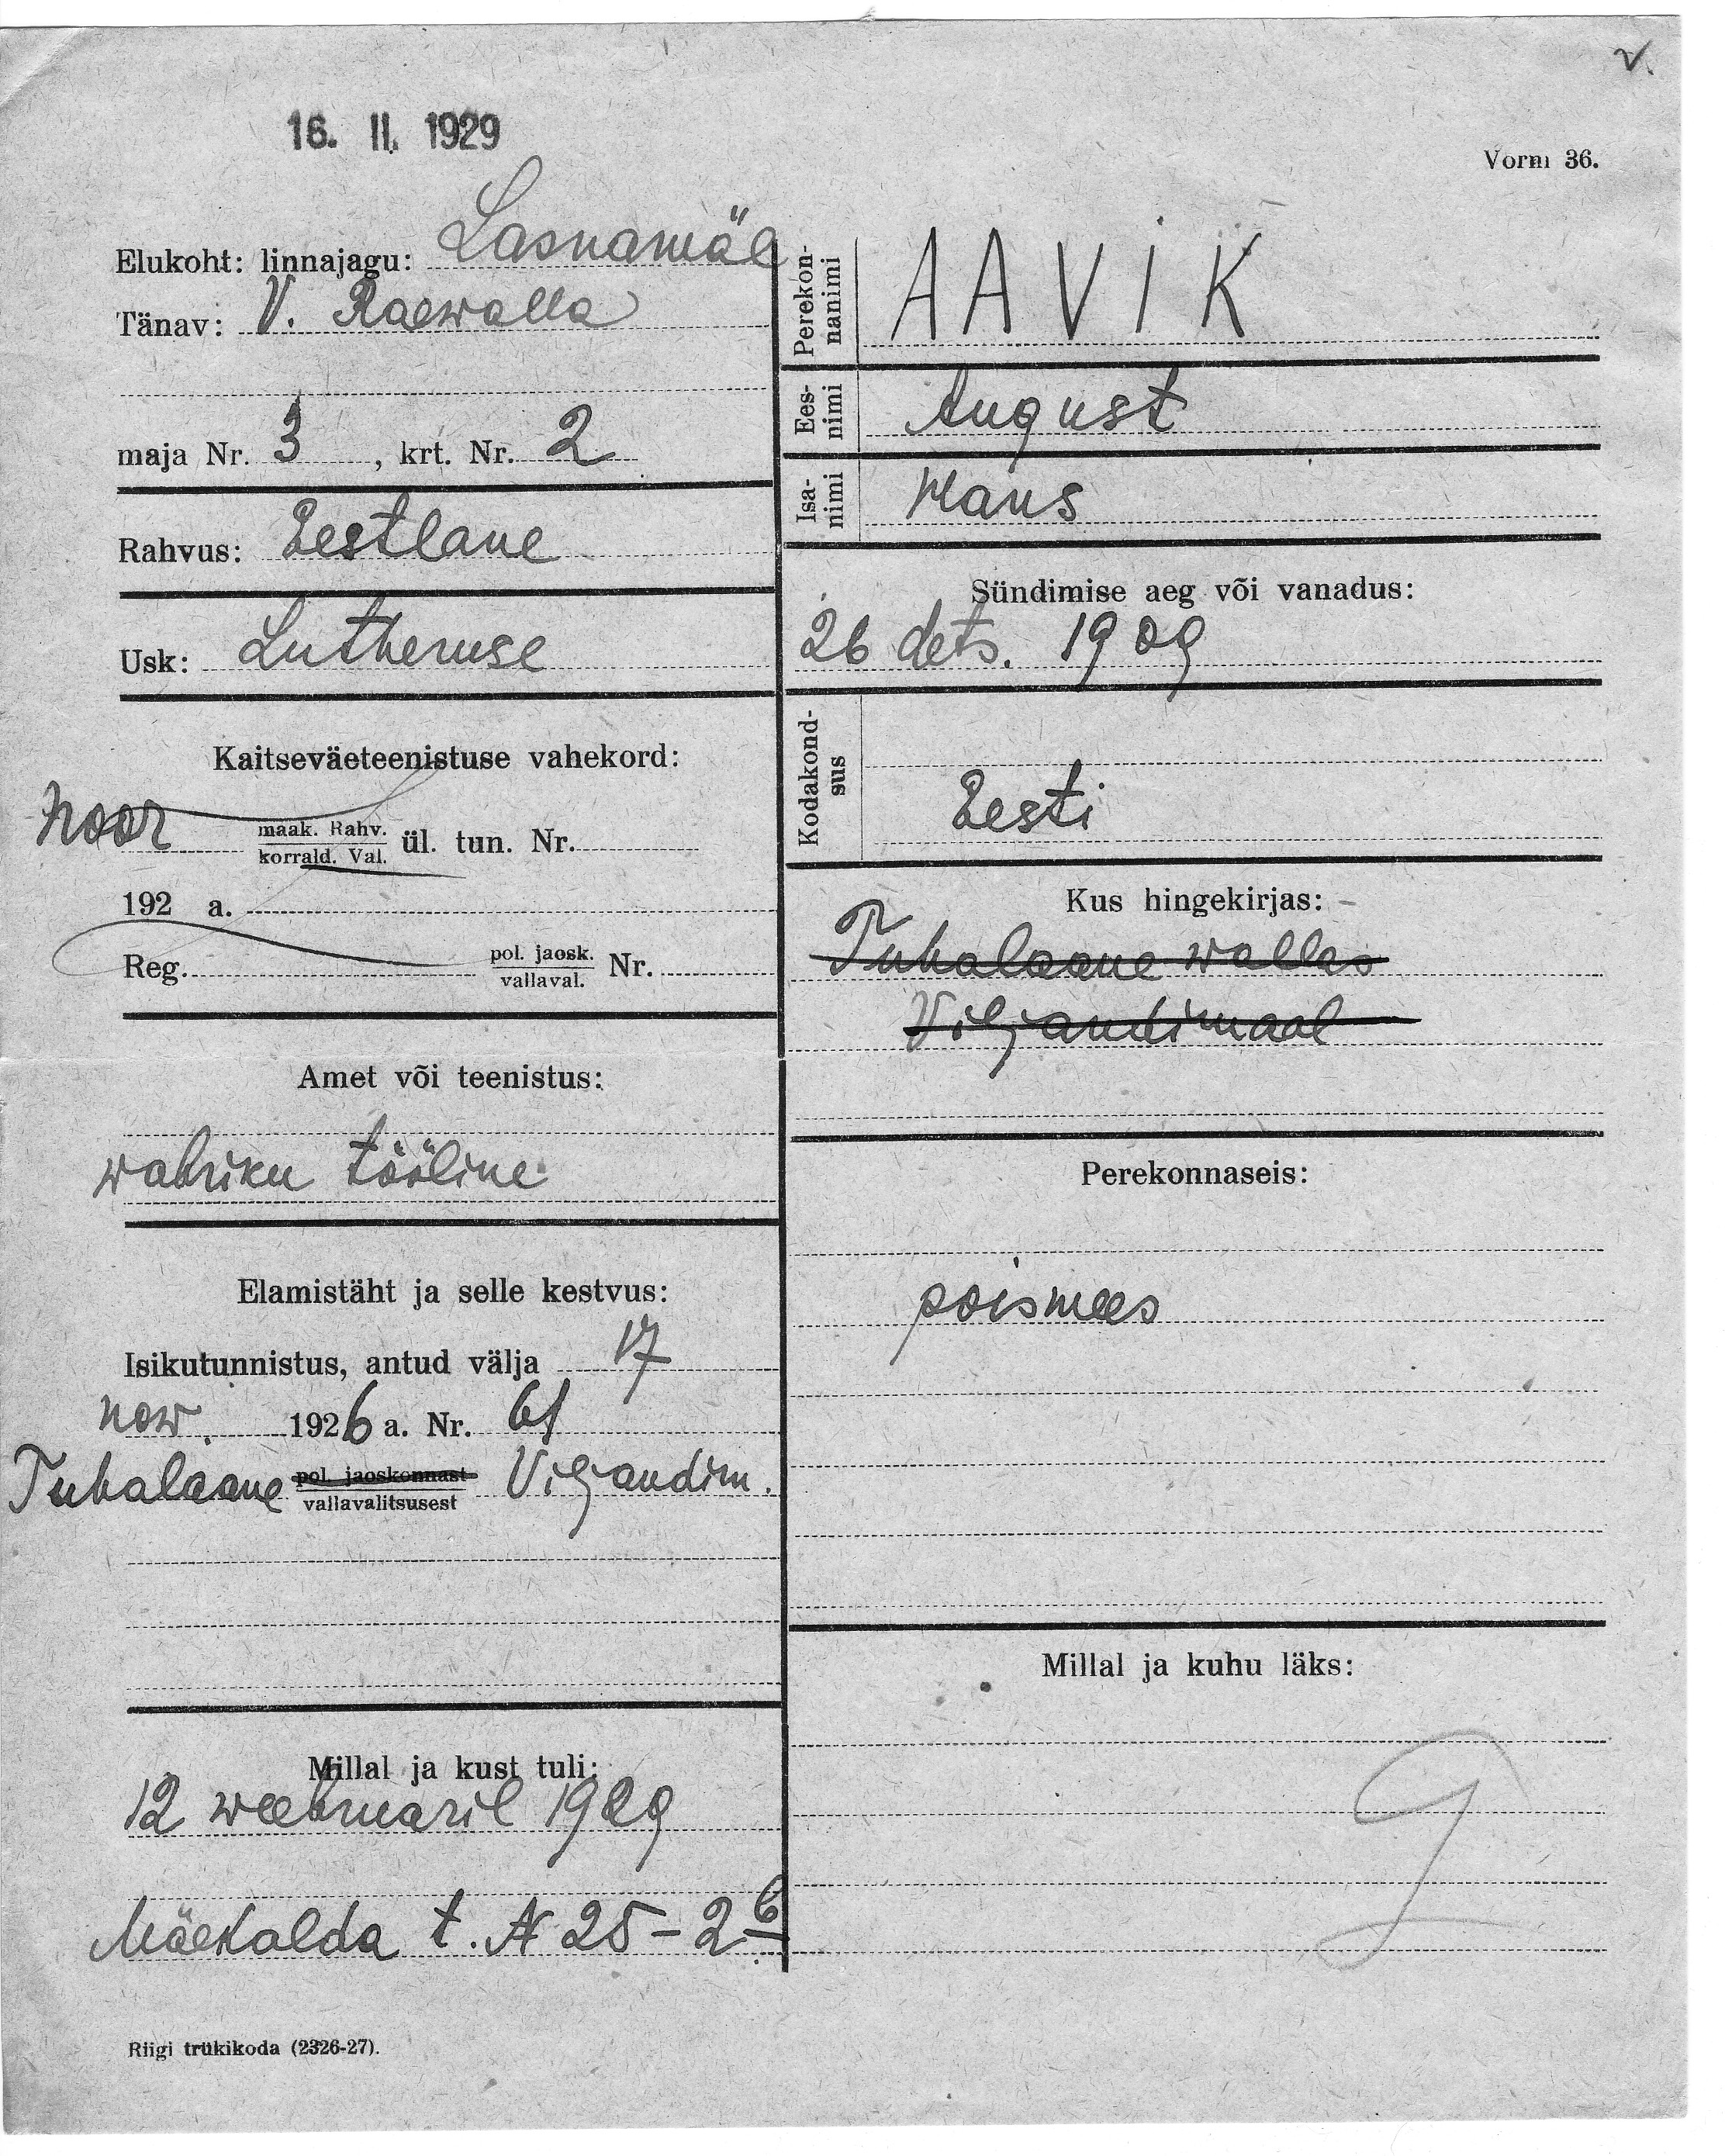 v.
16. II. 1929
Vorm 36.
Elukoht: linnajagu: Lasnamäe
Tänav: V. Raewalla
maja Nr. 3, krt. Nr. 2
Rahvus: Eestlane
Usk: Lutheruse
Kaitseväeteenistuse vahekord:
noor maak. Rahv.
korrald. Val. ül. tun. Nr.
192 a.
Reg. pol. jaosk.
vallaval. Nr.
Amet või teenistus:
wabriku tööline
Elamistäht ja selle kestvus:
Isikutunnistus, antud välja 17
now. 1926 a. Nr. 61
Tuhalaane pol. jaoskonnast
vallavalitsusest Viljandim.
Millal ja kust tuli:
12 weebruaril 1929
Mäekalda t. N 25-2b
Riigi trükikoda (2326-27).
Perekon-
nanimi
AAVIK
Ees-
nimi
August
Isa-
nimi
Hans
Sündimise aeg või vanadus:
26 dets. 1909
Kodakond-
sus
Eesti
Kus hingekirjas:
Tuhalaane wallas
Viljandimaal
Perekonnaseis:
poismees
Millal ja kuhu läks: